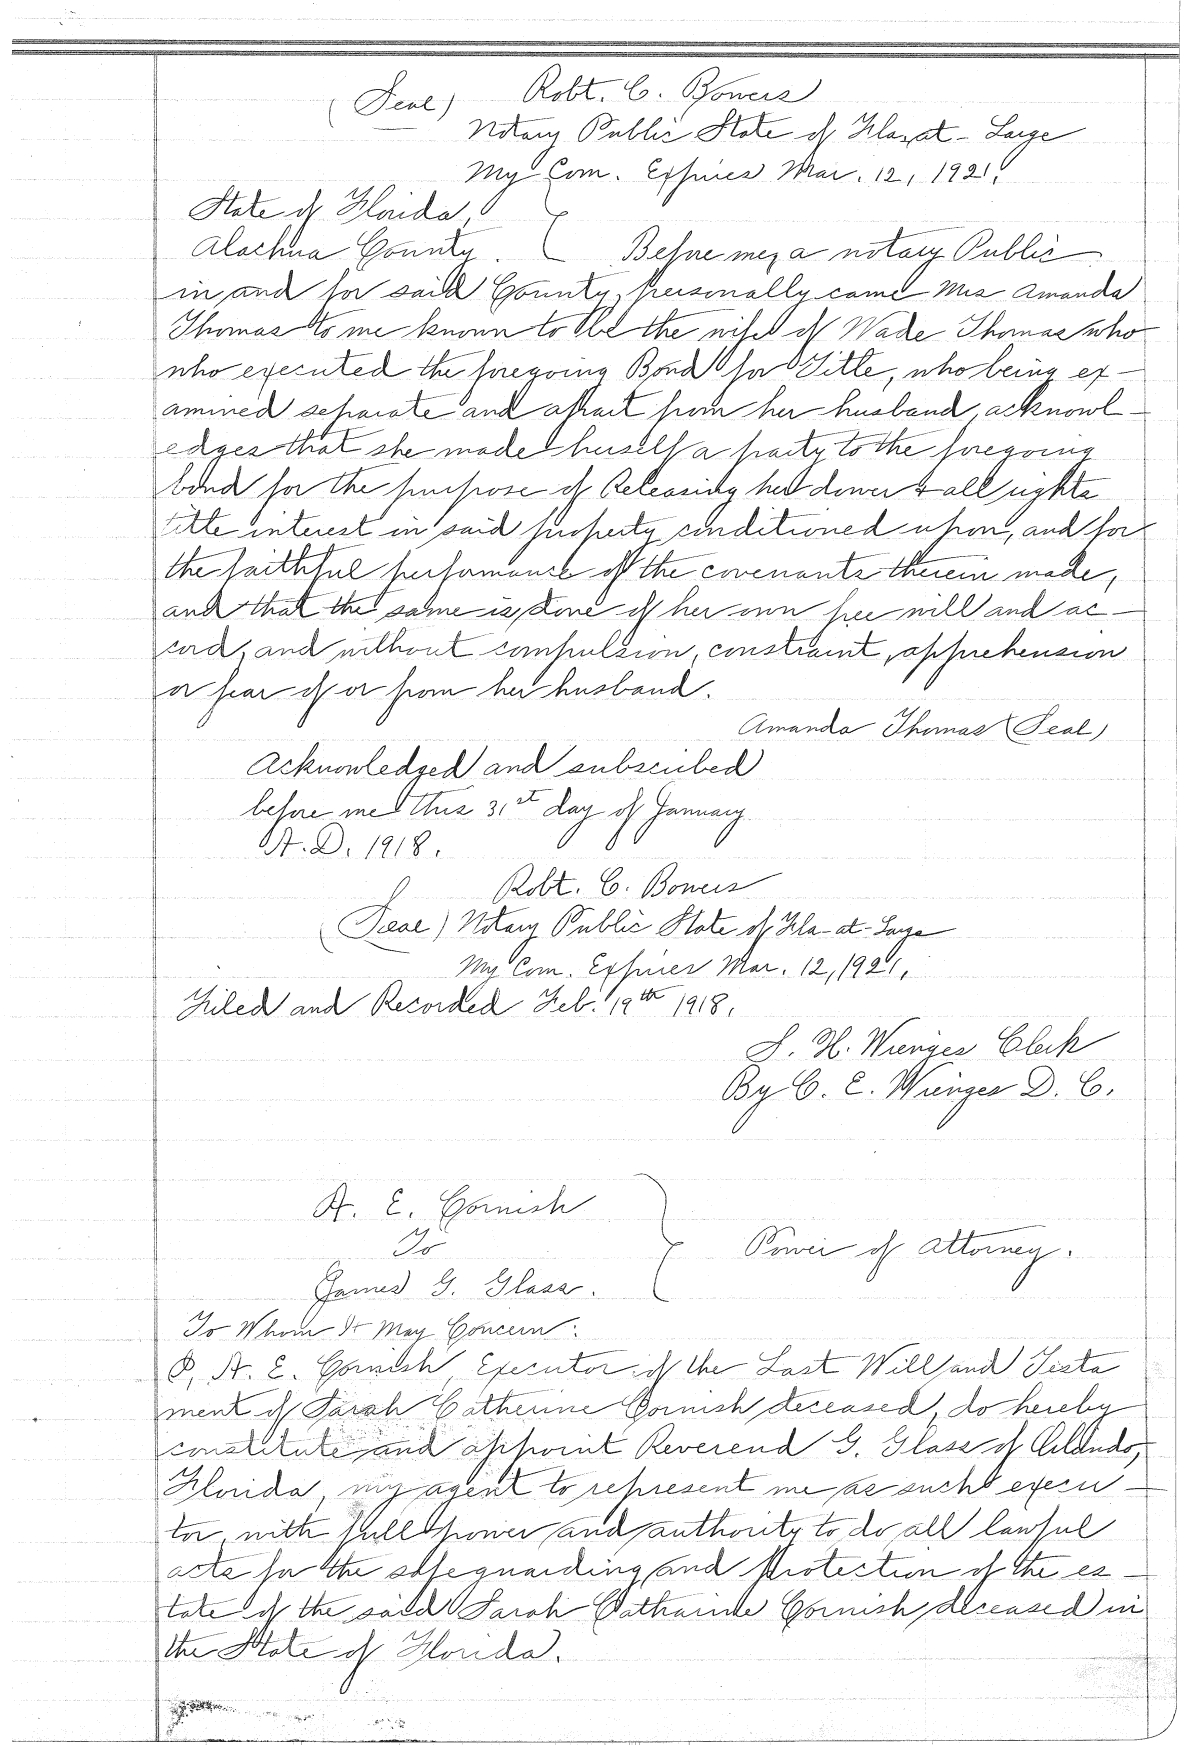 (Seal) Robt. C. Bowers
Notary Public State of Fla, at-Large
My Com. Expires Mar. 12, 1921.
State of Florida,
Alachua County. Before me, a notary Public
in and for said County, personally came Mrs Amanda
Thomas to me known to be the wife of Wade Thomas who
who executed the foregoing Bond for Title, who being ex-
amined separate and apart from her husband, acknowl-
edges that she made herself a party to the foregoing
bond for the purpose of Releasing her dower & all rights
title interest in said property conditioned upon, and for
the faithful performance of the covenants therein made,
and that the same is done of her own free will and ac-
cord, and without compulsion, constraint, apprehension
or fear of or from her husband.
Amanda Thomas (Seal)
Acknowledged and subscribed
before me this 31st day of January
A.D. 1918.
Robt. C. Bowers
(Seal) Notary Public State of Fla-at-Large
My Com. Expires Mar. 12, 1921.
Filed and Recorded Feb. 19th 1918.
S. H. Wienges Clerk
By C. E. Wienges D. C.
A. E. Cornish
To
Power of Attorney.
James G. Glass.
To Whom It May Concern:
I, A. E. Cornish, Executor of the Last Will and Testa
ment of Sarah Catherine Cornish, deceased, do hereby
constitute and appoint Reverend G. Glass of Orlando,
Florida, my agent to represent me as such execu-
tor, with full power and authority to do all lawful
acts for the safeguarding and Protection of the es-
tate of the said Sarah Catharine Cornish, deceased in
the State of Florida.